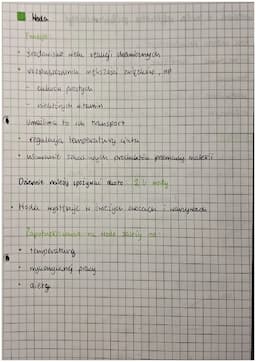 Woda
Funkcje
• środowisko wielu reakcji chemicznych
• rozpuszczanie większości związków, np
- cukrów prostych
- niektórych witamin
umożliwia to ich transport
• regulacja temperatury ciała
• usuwanie szkodliwych produktów przemiany materii
Dziennie należy spożywać około 2 l wody
• Woda występuje w świeżych owocach i warzywach
Zapotrzebowanie na wodę zależy od:
• temperatury
• wykonywanej pracy
• diety